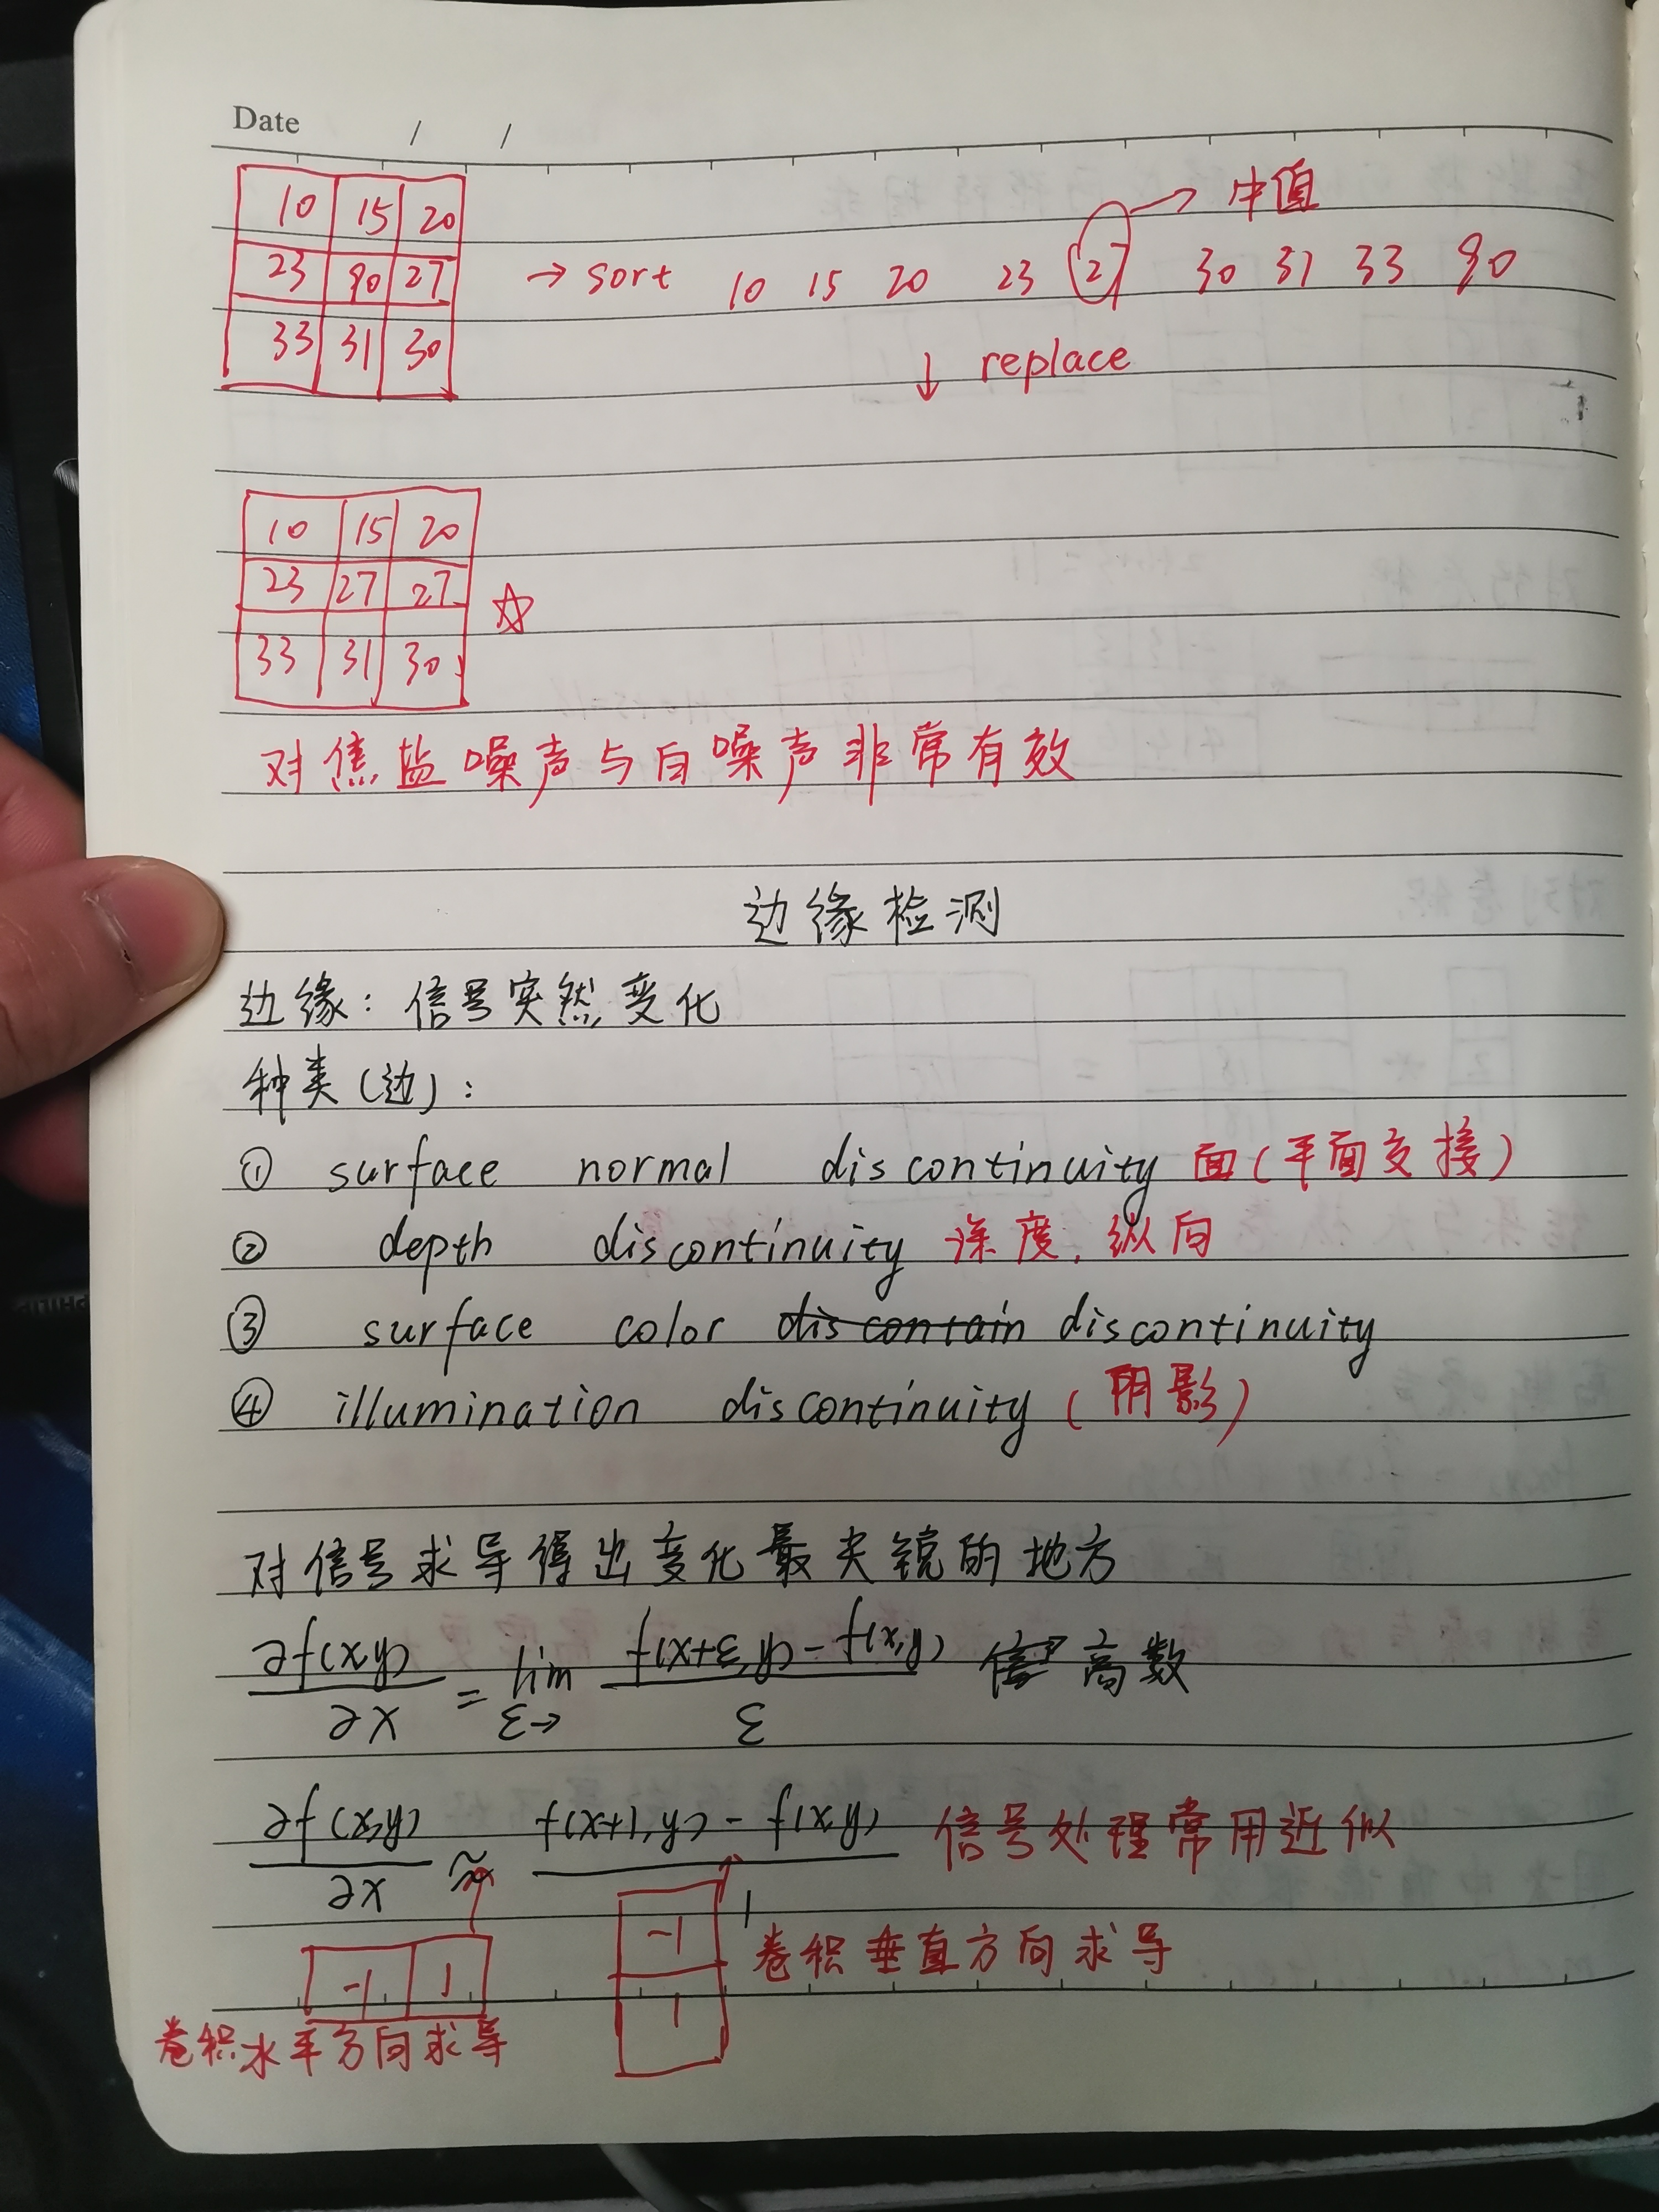 Date / /
10 15 20
23 90 27 → sort 10 15 20 23 27 30 31 33 90 → 中值
33 31 30
↓ replace
10 15 20
23 27 27 ☆
33 31 30
对焦盐噪声与白噪声非常有效
边缘检测
边缘：信号突然变化
种类（边）：
① surface normal discontinuity 面（平面交接）
② depth discontinuity 深度，纵向
③ surface color dis contain discontinuity
④ illumination discontinuity（阴影）
对信号求导得出变化最尖锐的地方
∂f(x,y)/∂x = lim ε→ (f(x+ε,y) - f(x,y))/ε 高数
∂f(x,y)/∂x ≈ (f(x+1,y) - f(x,y))/1 信号处理常用近似
-1
1
卷积垂直方向求导
-1 1
卷积水平方向求导